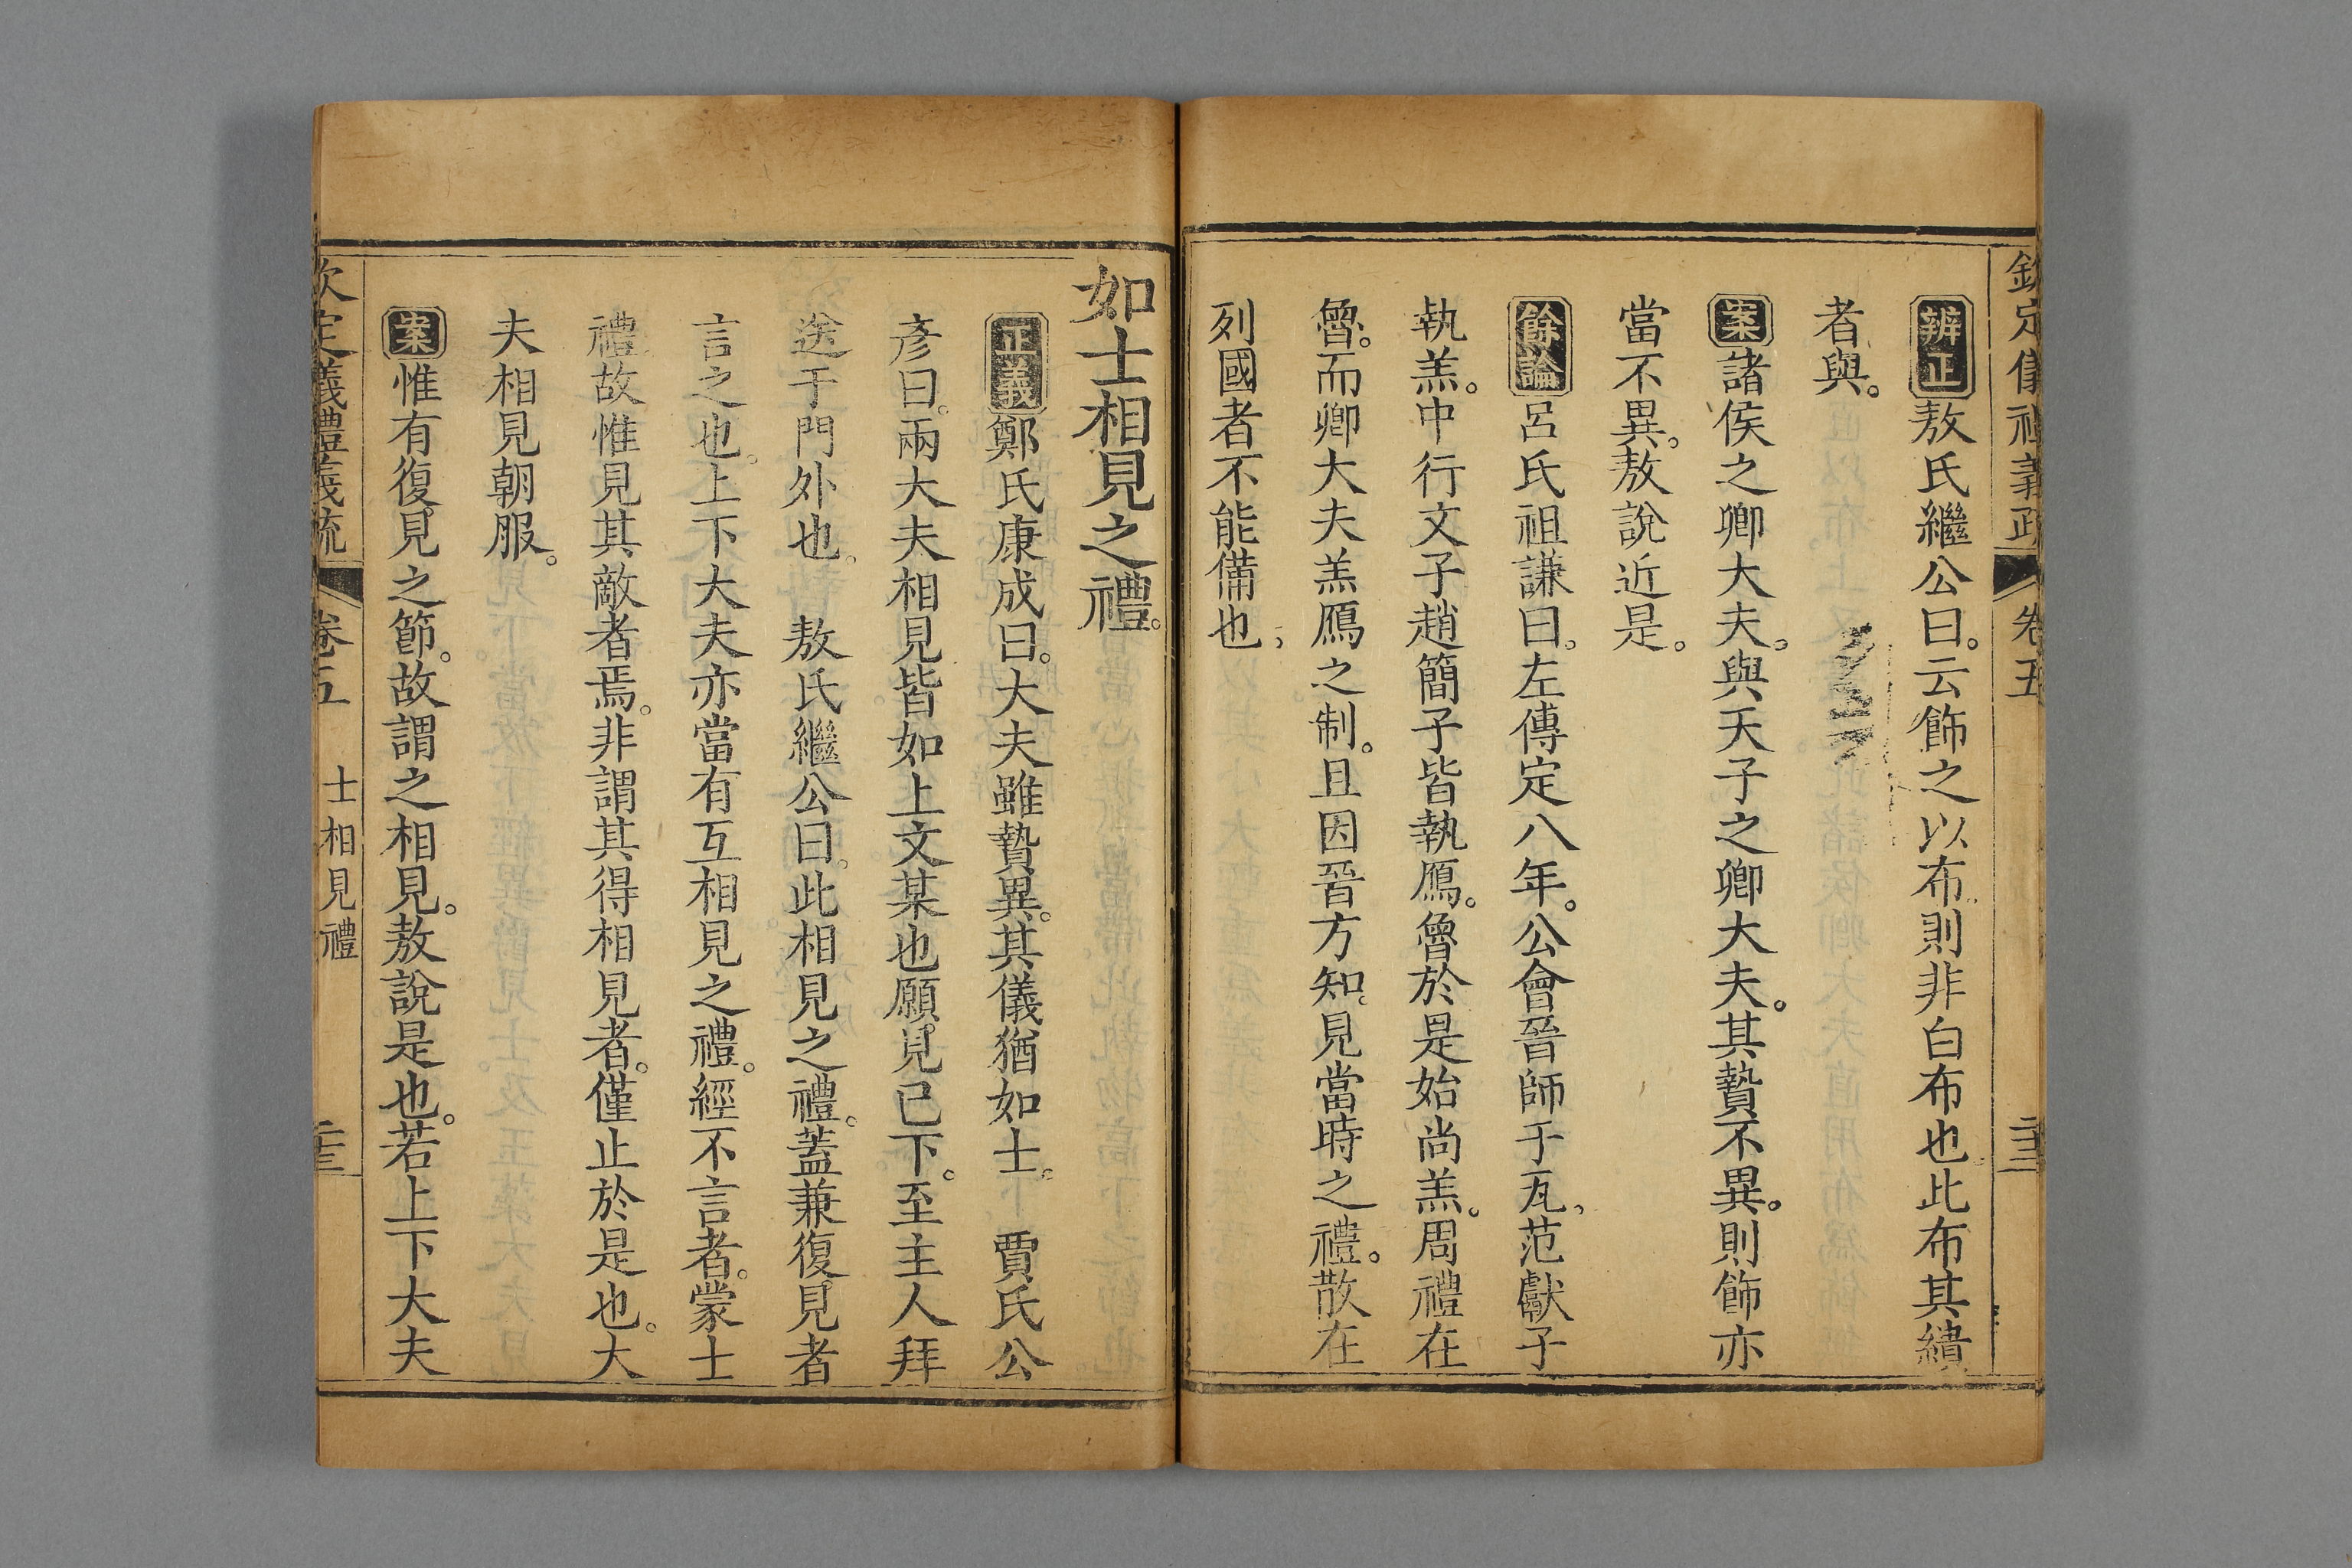 欽定儀禮義疏 卷五 二十三
辨正敖氏繼公曰。云飾之以布則非白布也此布其繢
者與。
案諸侯之卿大夫。與天子之卿大夫。其贄不異。則飾亦
當不異。敖說近是。
餘論呂氏祖謙曰。左傳定八年。公會晉師于瓦。范獻子
執羔。中行文子趙簡子皆執鴈。魯於是始尚羔。周禮在
魯。而卿大夫羔鴈之制。且因晉方知。見當時之禮。散在
列國者不能備也。
如士相見之禮。
正義鄭氏康成曰。大夫雖贄異。其儀猶如士。 賈氏公
彥曰。兩大夫相見皆如上文某也願見已下。至主人拜
送于門外也。 敖氏繼公曰。此相見之禮。蓋兼復見者
言之也。上下大夫亦當有互相見之禮。經不言者。蒙士
禮故惟見其敵者焉。非謂其得相見者。僅止於是也。大
夫相見朝服。
案惟有復見之節。故謂之相見。敖說是也。若上下大夫
欽定儀禮義疏 卷五 士相見禮 二十三